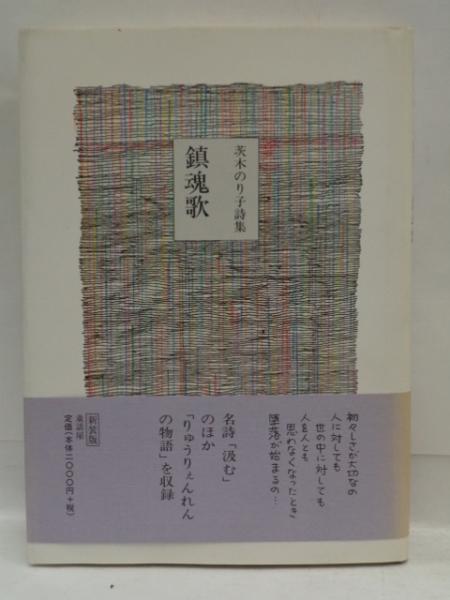 茨木のり子詩集
鎮魂歌
初々しさが大切なの
人に対しても
世の中に対しても
人を人とも
思わなくなったとき
堕落が始まるの…
名詩「汲む」
のほか
「りゅうりぇんれん
の物語」を収録
新装版
童話屋
定価(本体二〇〇〇円+税)